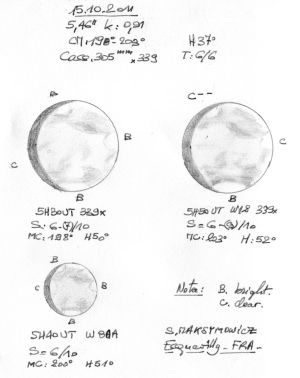 15.10.2011
5,46" k: 0,91
CM: 198° - 203° H 37°
Cass. 305 mm x 339 T: 6/6
B
C--
B
C
B
B
C
B
5H30UT 339x
S: 6-(7)/10
MC: 198° H50°
5H50UT W15 339x
S = 6-(7)/10
MC: 203° H: 52°
B
C
B
B
5H40UT W80A
S = 6/10
MC: 200° H51°
Nota: B. bright.
C. clear.
S. MAKSYMOWICZ
Ecquevilly - FRA -